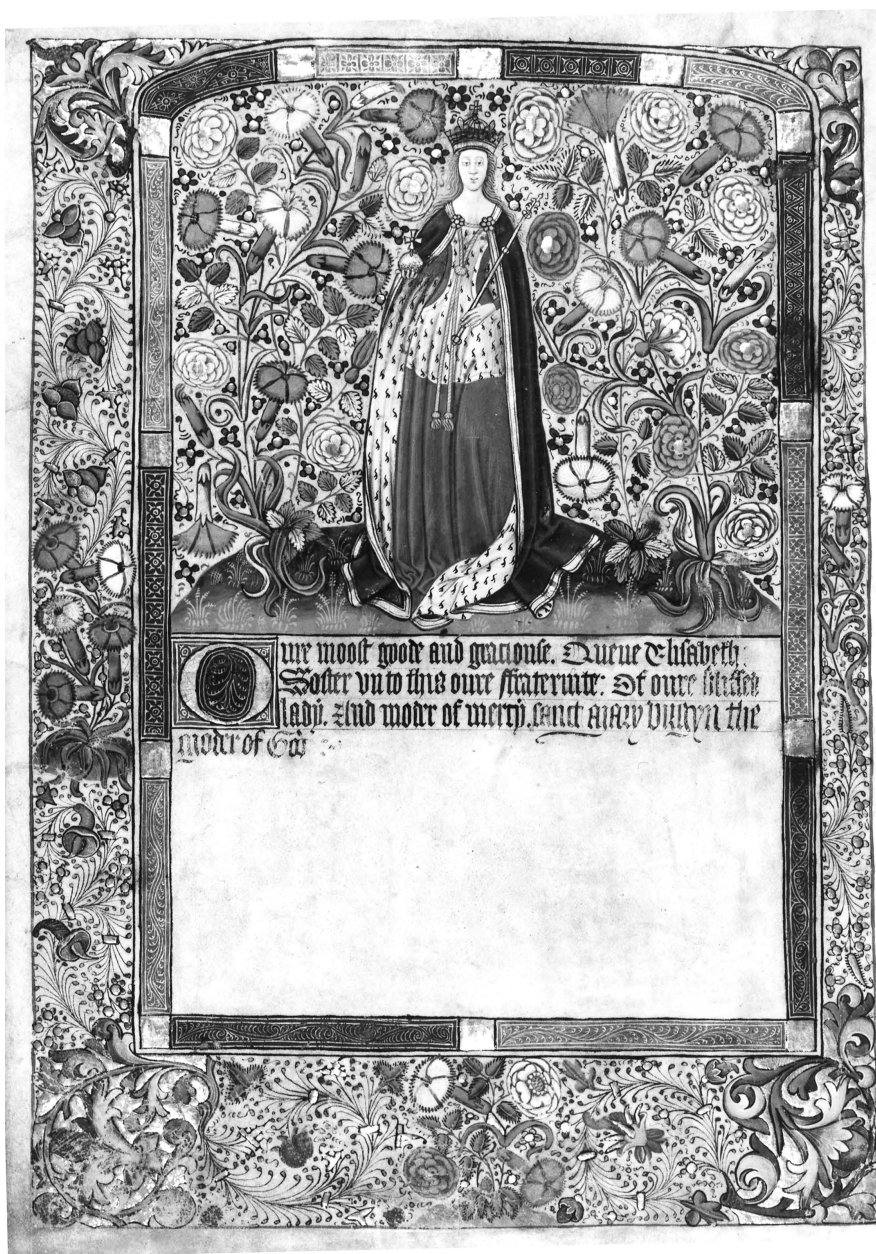 Oure moost goode and graciouse. Quene Elisabeth:
Soster vn to this oure ffraternite: Of oure blissed
lady. And modr of mercy. sanct Mary virgyn the
modr of God